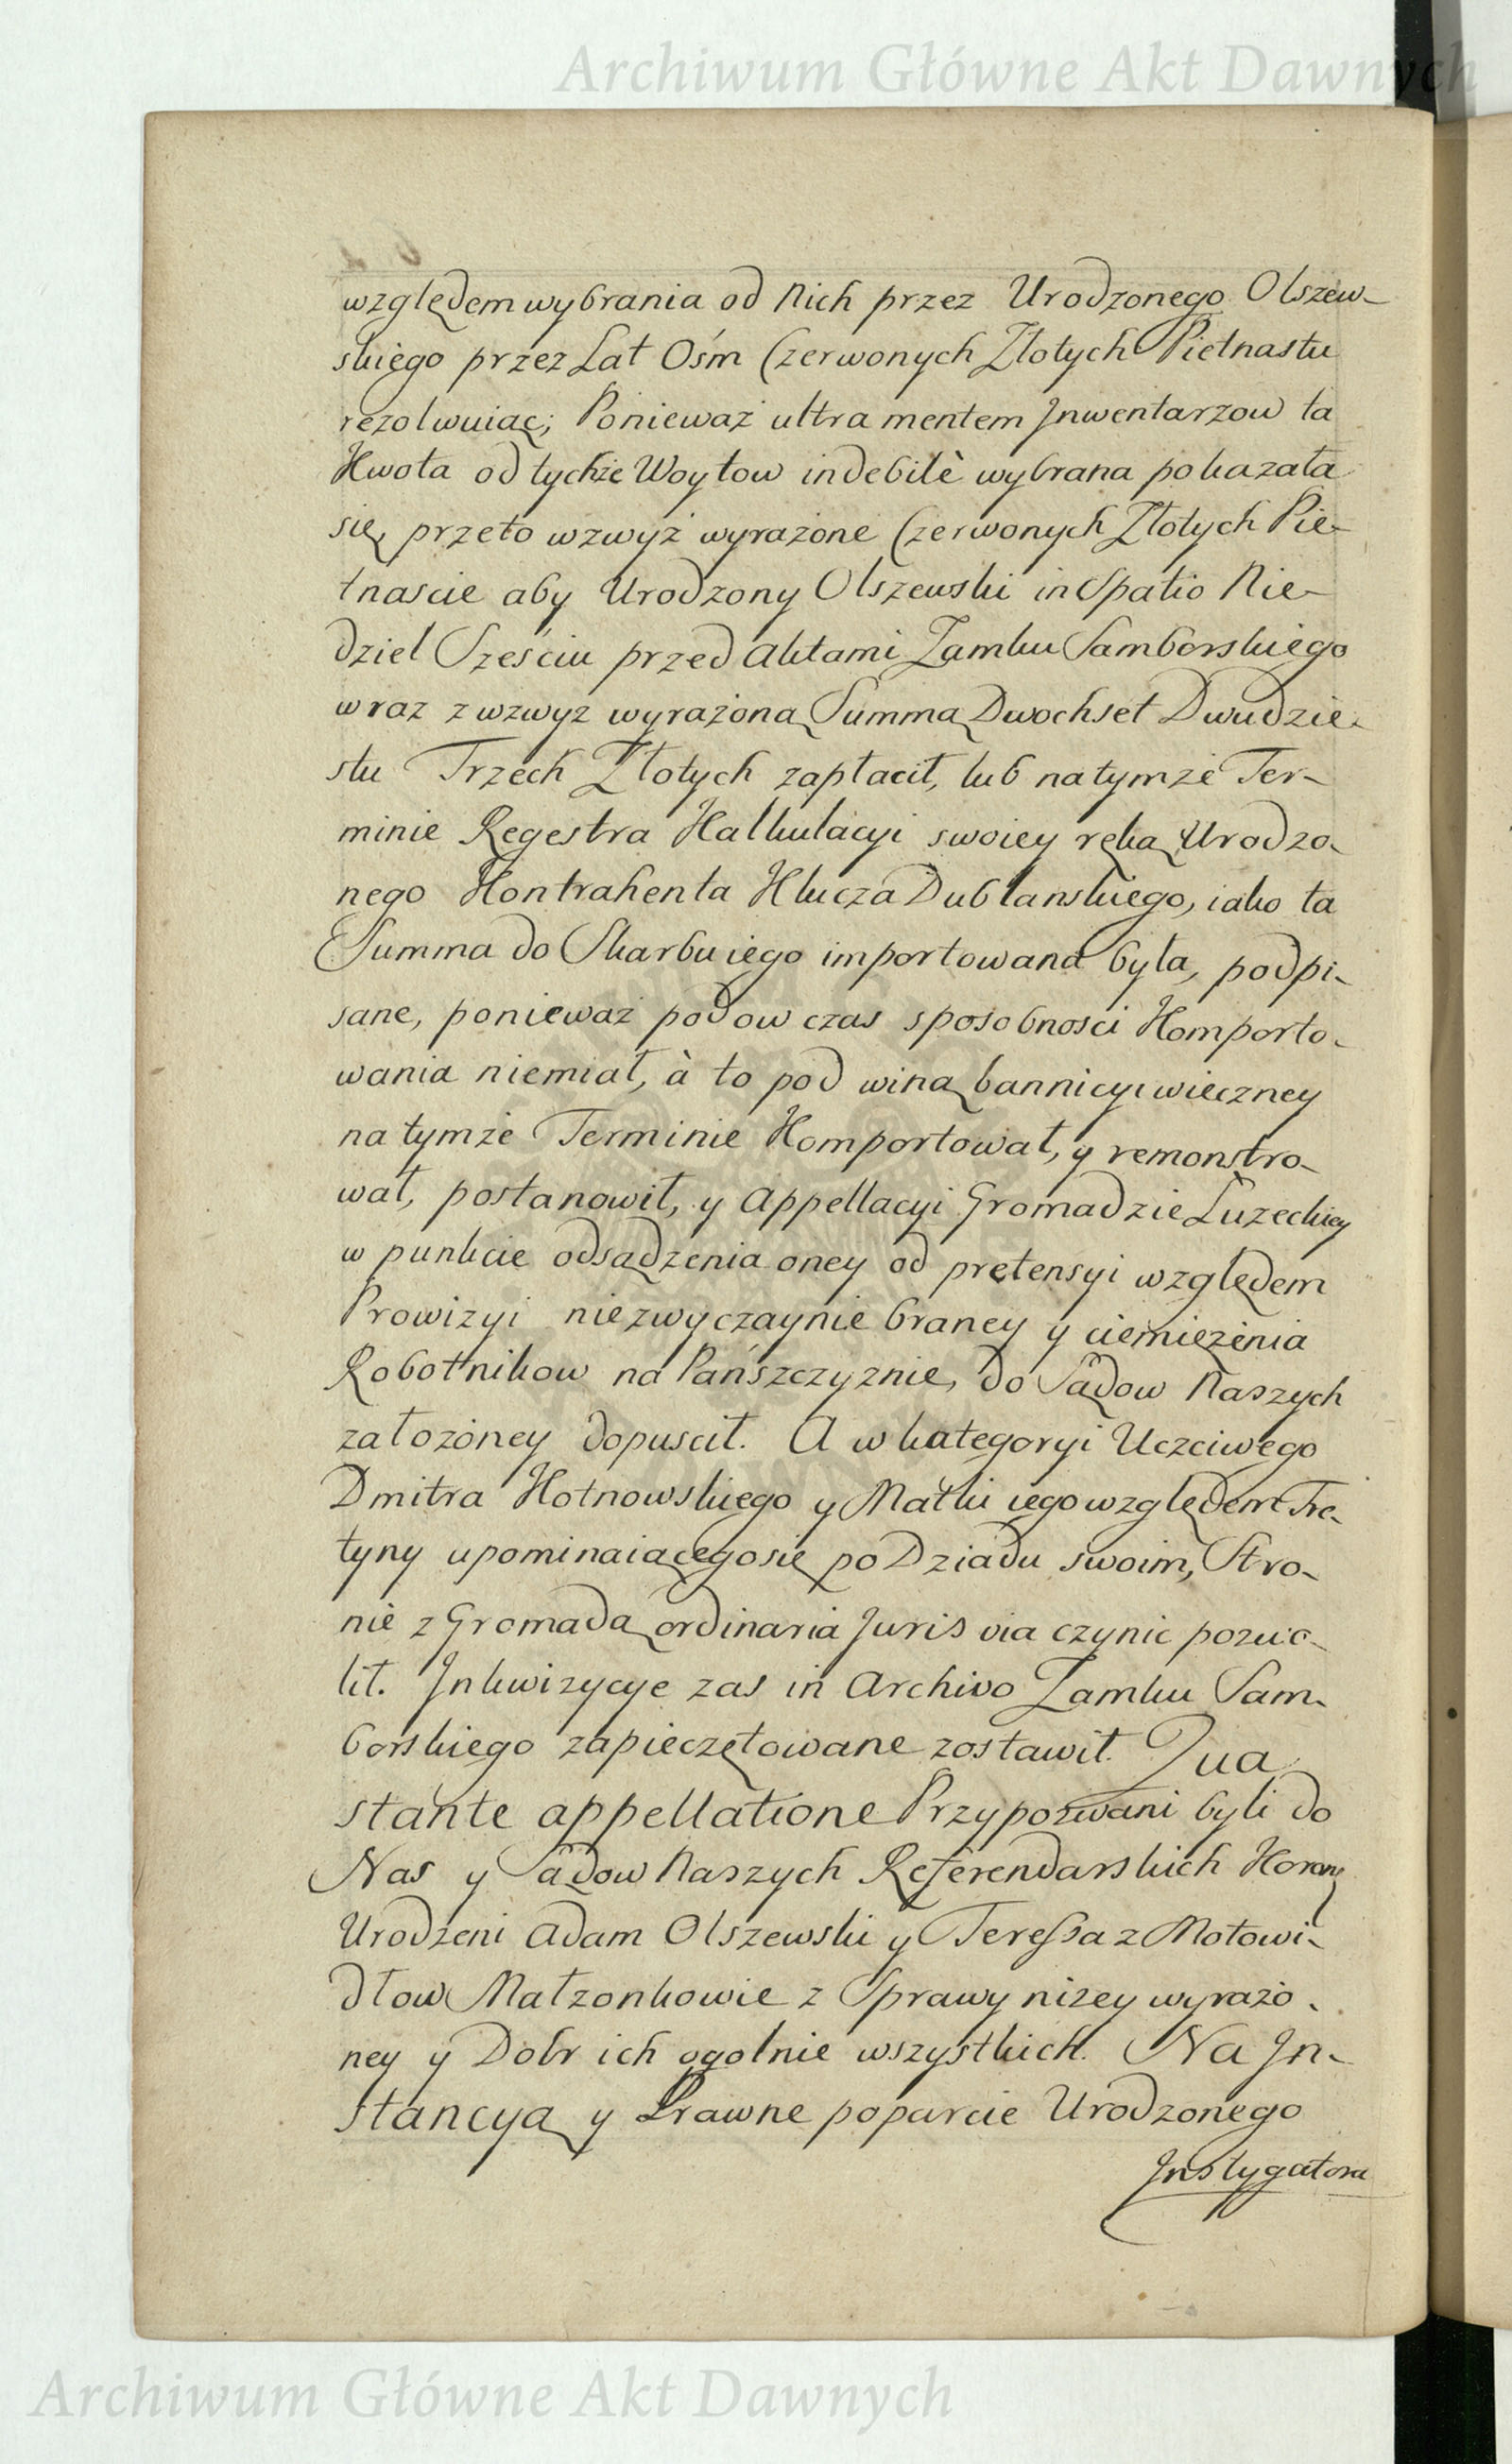 Archiwum Główne Akt Dawnych
względem wybrania od Nich przez Urodzonego Olszew-
skiego przez Lat Ośm Czerwonych Złotych Pietnastu
rezolwuiąc; Ponieważ ultra mentem Inwentarzow ta
Kwota od tychże Woytow indebitè wybrana pokazała
się, przeto wzwyż wyrażone Czerwonych Złotych Pie-
tnascie aby Urodzony Olszewski in Spatio Nie-
dziel Sześciu przed Aktami Zamku Samborskiego
wraz z wzwyz wyrażoną Summą Dwochset Dwudzie-
stu Trzech Złotych zapłacił, lub na tymże Ter-
minie Regestra Kalkulacyi swoiey ręką Urodzo-
nego Kontrahenta Klucza Dublanskiego, iako ta
Summa do Skarbu iego importowana była, podpi-
sane, ponieważ podow czas sposobnosci Komporto-
wania niemiał, à to pod winą bannicyi wieczney
na tymże Terminie Komportował, y remonstro-
wał, postanowił, y Appellacyi Gromadzie Łużeckiey
w punkcie odsądzenia oney od pretensyi względem
Prowizyi niezwyczaynie braney y ciemięzenia
Robotnikow na Pańszczyznie, do Sądow Naszych
założoney dopuscił. A w kategoryi Uczciwego
Dmitra Kotnowskiego y Matki iego względem Tre-
tyny upominaiącego się po Dziadu swoim, Stro-
nie z Gromadą ordinaria Juris via czynic pozwo-
lił. Inkwizycye zas in Archivo Zamku Sam-
borskiego zapieczętowane zostawił. Qua
stante appellatione Przypozwani byli do
Nas y Sądow Naszych Referendarskich Koronn̄
Urodzeni Adam Olszewski y Teressa z Motowi-
dłow Małzonkowie z Sprawy niżey wyrażo-
ney y Dobr ich ogolnie wszystkich. Na In-
stancyą y Prawne poparcie Urodzonego
Instygatora
Archiwum Główne Akt Dawnych